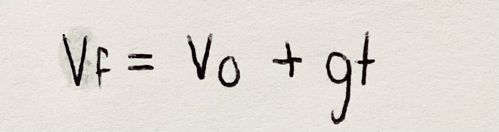 VF = VO + gt